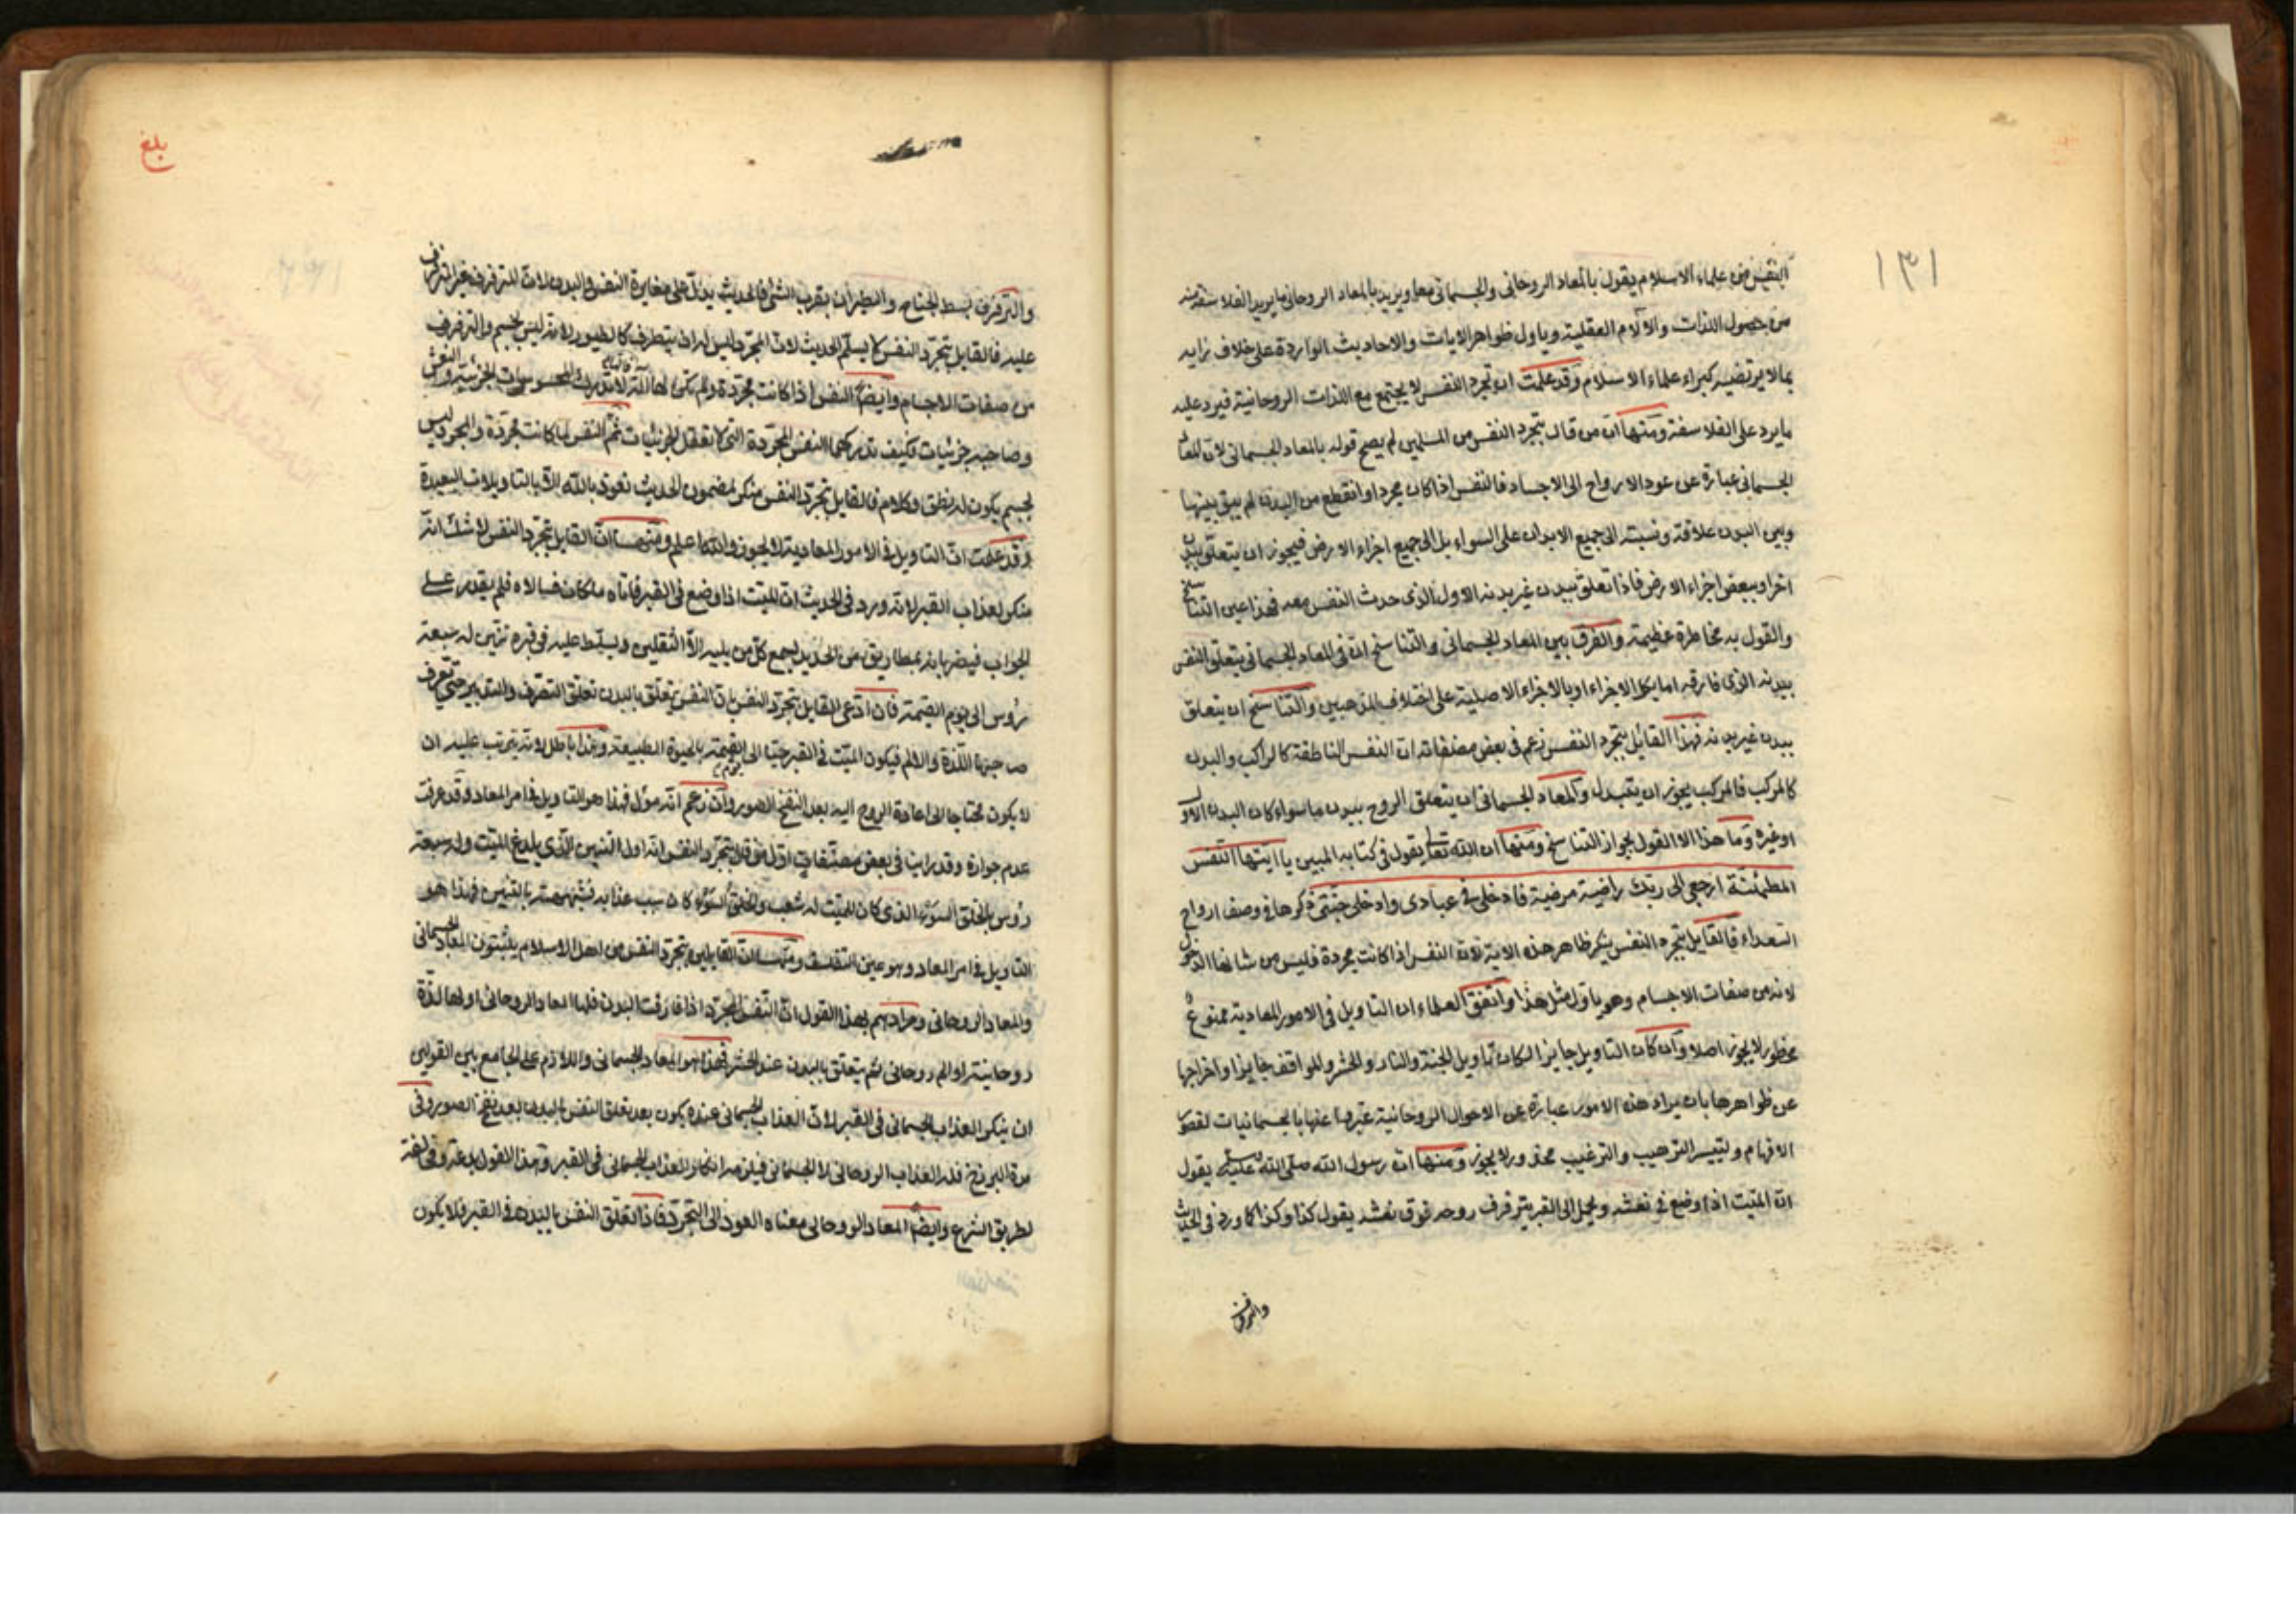 ١٣١
النفس من علماء الاسلام يقول بالمعاد الروحانى والجسمانى معا ويريد بالمعاد الروحانى ما يريد الفلاسفة
من حصول اللذات والآلام العقلية وياول ظواهر الايات والاحاديث الواردة على خلاف رايه
بما لا يرتضيه كبراء علماء الاسلام وقد علمت ان تجرد النفس لا يجتمع مع اللذات الروحانية فيرد عليه
ما يرد على الفلاسفة ومنها ان من قال بتجرد النفس من المسلمين لم يصح قوله بالمعاد الجسمانى لان المعاد
الجسمانى عبارة عن عود الارواح الى الاجساد فالنفس اذا كان مجردا وانقطع من البدن لم يبق بينها
وبين البدن علاقة ونسبته الى جميع الابدان على السواء بل الى جميع اجزاء الارض فيجوز ان يتعلق ببدن
اخر او ببعض اجزاء الارض فاذا تعلق ببدن غير بدنه الاول الذى حدث النفس معه فهذا عين التناسخ
والقول به مخاطرة عظيمة والفرق بين المعاد الجسمانى والتناسخ ان فى المعاد الجسمانى يتعلق النفس
ببدنه الذى فارقه اما بكل الاجزاء او بالاجزاء الاصلية على اختلاف المذهبين والتناسخ ان يتعلق
ببدن غير بدنه فهذا القائل بتجرد النفس زعم فى بعض مصنفاته ان النفس الناطقة كالراكب والبدن
كالمركب فالمركب يجوز ان يتبدل والمعاد الجسمانى ان يتعلق الروح ببدن ما سواء كان البدن الاول
او غيره وما هذا الا القول بجواز التناسخ ومنها ان الله تعالى يقول فى كتابه المبين يا ايتها النفس
المطمئنة ارجعى الى ربك راضية مرضية فادخلى فى عبادى وادخلى جنتى ذكرها فى وصف ارواح
السعداء فالقايل بتجرد النفس ينكر ظاهر هذه الاية لان النفس اذا كانت مجردة فليس من شانها الدخول
لانه من صفات الاجسام وهو ياول مثل هذا واتفق العلماء ان التاويل فى الامور المعادية ممنوع
محظور لا يجوز اصلا وان كان التاويل جايزا لكان تاويل الجنة والنار والحشر والمواقف جايزا واخراجها
عن ظواهرها بان يراد هذه الامور عبارة عن الاحوال الروحانية عبر بها عنها بالجسمانيات لقصور
الافهام ولتيسر الترهيب والترغيب محذور لا يجوز ومنها ان رسول الله صلى الله عليه يقول
ان الميت اذا وضع فى نعشه ويحمل الى القبر يترفرف روحه فوق نعشه يقول كذا وكذا كما ورد فى الحديث
والترفرف
بلغ
والترفرف بسط الجناح والطيران بقرب الشئ فالحديث يدل على مغايرة النفس والبدن لان المترفرف غير المترفرف
عليه فالقايل بتجرد النفس لا يسلم الحديث لان المجرد ليس له ان يتطرف كالطيور لانه ليس بجسم والترفرف
من صفات الاجسام وايضا النفس اذا كانت مجردة ولم تكن لها آلة لا تدرك المحسوسات الجزئية والنعش
وصاحبه جزئيات فكيف تدركها النفس المجردة التى لا تعقل الجزئيات ثم النفس لما كانت مجردة والمجرد ليس
بجسم يكون له نطق وكلام فالقايل بتجرد النفس منكر لمضمون الحديث نعوذ بالله الا بالتاويلات البعيدة
وقد علمت ان التاويل فى الامور المعادية لا يجوز والله اعلم ومنها ان القايل بتجرد النفس لا شك انه
منكر لعذاب القبر لانه ورد فى الحديث ان الميت اذا وضع فى القبر فاتاه ملكان فسالاه فلم يقدر على
الجواب فيضربانه بمطاريق من الحديد يسمع كل من يليه الا الثقلين ويسلط عليه فى قبره تنين له سبعة
رؤس الى يوم القيمة فان ادعى القايل بتجرد النفس بان النفس يتعلق بالبدن تعلق التصرف والتدبير حتى تعرف
صاحبها اللذة والالم فيكون الميت فى القبر حيا الى يوم القيمة بالحيوة الطبيعة وهذا باطل لانه يترتب عليه ان
لا يكون محتاجا الى اعادة الروح اليه بعد النفخ الصور وان زعم انه مؤل فهذا هو التاويل فى امر المعاد وقد عرفت
عدم جوازه وقد راينا فى بعض مصنفات بتجرد النفس انه اول التنين الذى يلدغ الميت وله سبعة
رؤس بالخلق السوء الذى كان للميت له شعب والخلق السوء كان سبب عذابه فشبهه بالتنين فهذا هو
التاويل فى امر المعاد وهو عين التفلسف ومنها ان القايلين بتجرد النفس من اهل الاسلام يثبتون المعاد الجسمانى
والمعاد الروحانى ومرادهم بهذا القول ان النفس المجرد اذا فارقت البدن فلها المعاد الروحانى اولها لذة
روحانية او الم روحانى ثم يتعلق بالبدن عند الحشر فهذا هو المعاد الجسمانى واللازم على الجامع بين القولين
ان ينكر العذاب الجسمانى فى القبر لان العذاب الجسمانى عنده يكون بعد تعلق النفس بالبدن بعد نفخ الصور وفى
مدة البرزخ فله العذاب الروحانى لا الجسمانى فيلزمه انكار العذاب الجسمانى فى القبر وهذا القول بدعة ومخالفة
لطريق الشرع وايضا المعاد الروحانى معناه العود الى التجرد فاذا تعلق النفس بالبدن فى القبر فلا يكون